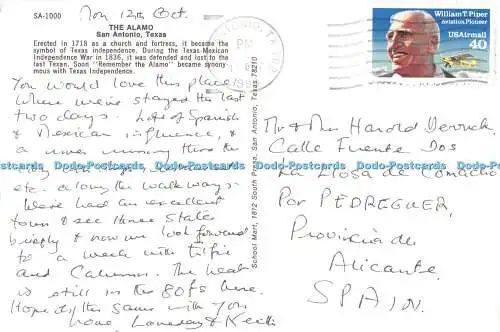 SA-1000
Mon 12th Oct.
THE ALAMO
San Antonio, Texas
Erected in 1718 as a church and fortress, it became the
symbol of Texas independence. During the Texas-Mexican
Independence War in 1836, it was defended and lost to the
last Texan. Soon "Remember the Alamo" became synony-
mous with Texas Independence.
You would love this place
where we've stayed the last
two days. Lots of Spanish
& Mexican influence, &
a river running thro' the
etc. along the walkways.
We've had an excellent
town & see three States
briefly & now we look forward
to a week with
and Cameron. The heat
is still in the 80fs here.
Hope it's the same with you
Love, Loveday & Keith
School Mart, 1812 South Press, San Antonio, Texas 78210
SAN ANTONIO, TX
PM
William T. Piper
Aviation Pioneer
USAirmail
40
Mr & Mrs Harold Derrick
Calle Fuente Dos
La Llosa de Camacho
Por PEDREGUER,
Provincia de
Alicante.
SPAIN.
Dodo-Postcards Dodo-Postcards Dodo-Postcards Dodo-Postcards Dodo-Postcards
Dodo-Postcards Dodo-Postcards Dodo-Postcards Dodo-Postcards Dodo-Postcards